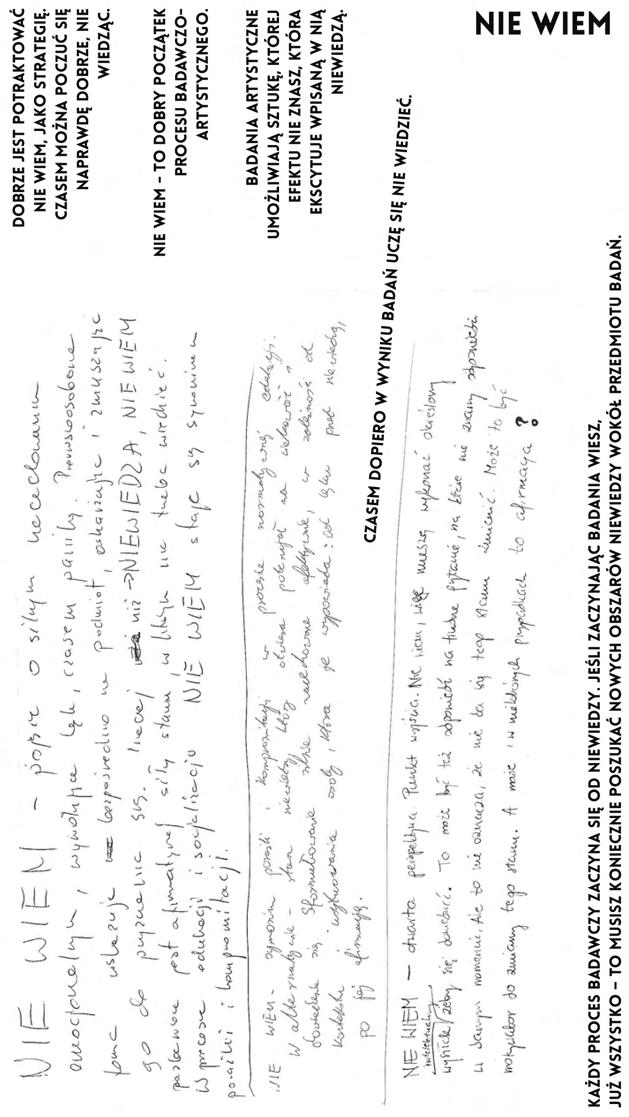 NIE WIEM
DOBRZE JEST POTRAKTOWAĆ
NIE WIEM, JAKO STRATEGIĘ.
CZASEM MOŻNA POCZUĆ SIĘ
NAPRAWDĘ DOBRZE, NIE
WIEDZĄC.
NIE WIEM – TO DOBRY POCZĄTEK
PROCESU BADAWCZO-
ARTYSTYCZNEGO.
BADANIA ARTYSTYCZNE
UMOŻLIWIAJĄ SZTUKĘ, KTÓREJ
EFEKTU NIE ZNASZ, KTÓRA
EKSCYTUJE WPISANĄ W NIĄ
NIEWIEDZĄ.
NIE WIEM – pojęcie o silnym nacechowaniu
emocjonalnym, wywołujące lęk, czasem panikę. Pierwszoosobowa
forma wskazuje bezpośrednio na podmiot, oskarżając i zmuszając
go do przyznania się. Inaczej niż → NIEWIEDZA, NIE WIEM
pozbawione jest afirmatywnej siły stanu, w którym nie trzeba wiedzieć.
W procesie edukacji i socjalizacji NIE WIEM staje się synonimem
porażki i kompromitacji.
NIE WIEM – synonim porażki i kompromitacji w procesie normatywnej edukacji.
W alternatywie – stan niewiedzy, który otwiera potencjał na ciekawość,
dowiedzenie się. Sformułowanie silnie nacechowane afektywnie, w zależności od
kontekstu i wychowania osoby, która je wypowiada: od lęku przed niewiedzą,
po jej afirmację.
CZASEM DOPIERO W WYNIKU BADAŃ UCZĘ SIĘ NIE WIEDZIEĆ.
NIE WIEM – otwarta perspektywa. Punkt wyjścia. Nie wiem, więc muszę wykonać określony
intelektualny
wysiłek, żeby się dowiedzieć. To może być też odpowiedź na trudne pytanie, na które nie znamy odpowiedzi
w danym momencie, ale to nie oznacza, że nie da się tego stanu zmienić. Może to być
motywator do zmiany tego stanu. A może i w niektórych przypadkach to afirmacja?
KAŻDY PROCES BADAWCZY ZACZYNA SIĘ OD NIEWIEDZY. JEŚLI ZACZYNAJĄC BADANIA WIESZ,
JUŻ WSZYSTKO – TO MUSISZ KONIECZNIE POSZUKAĆ NOWYCH OBSZARÓW NIEWIEDZY WOKÓŁ PRZEDMIOTU BADAŃ.